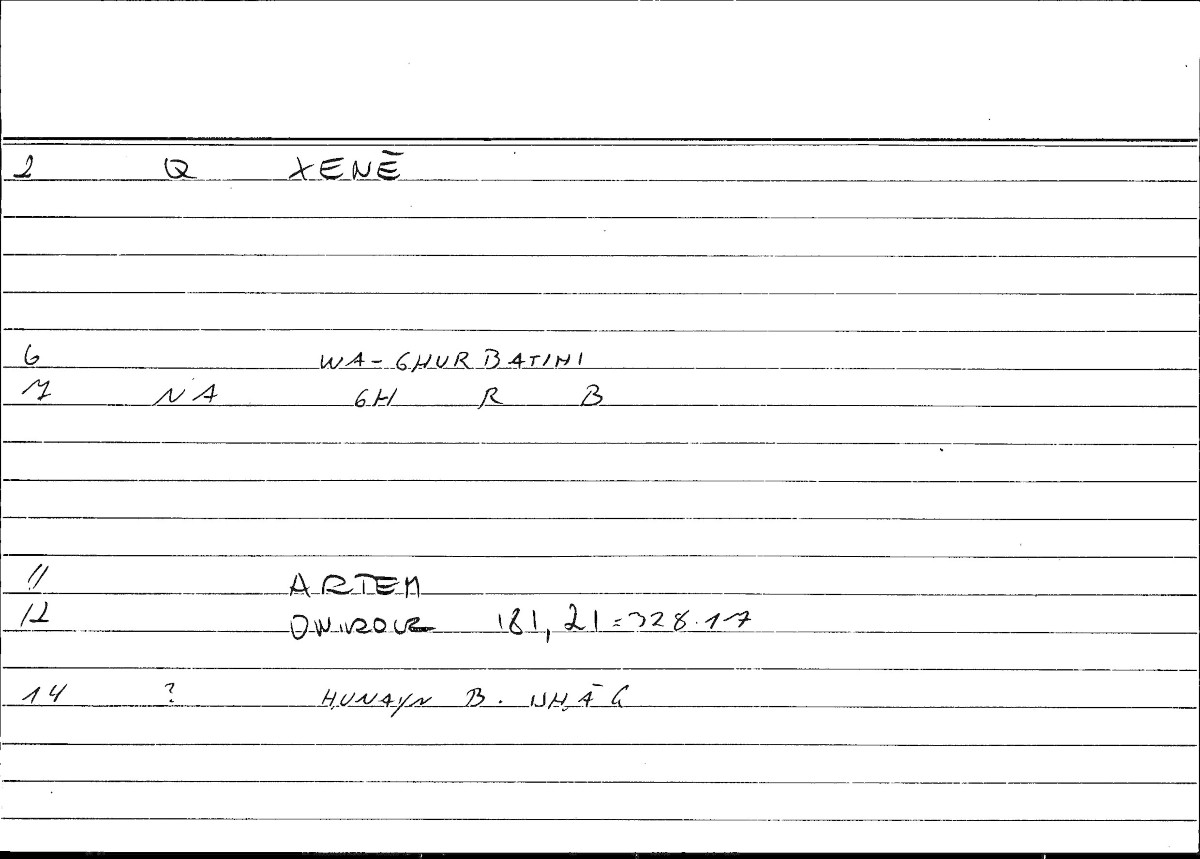 2 Q XENĒ
6 WA-GHURBATIHI
7 NA GH R B
11 ARTEM
12 ONIROCR 181, 21=328.17
14 ? ḤUNAYN B. ISḤĀQ